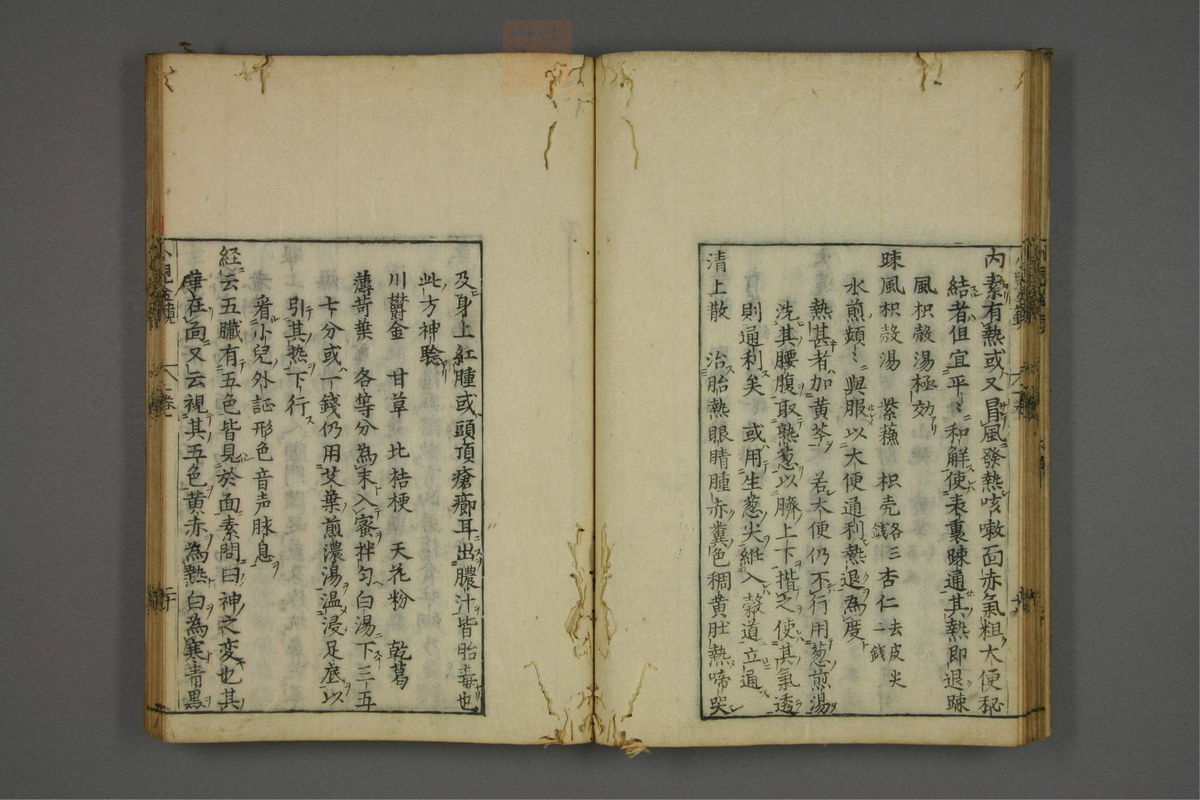 内素有熱或又冒風發熱咳嗽面赤氣粗大便秘
結者但宜平〻和解使表裏踈通其熱即退踈
風枳殼湯極効
踈風枳殼湯 紫蘓 枳壳各三錢杏仁二錢去皮尖
水煎頻〻與服以大便通利熱退為度
熱甚者加黄芩 若大便仍不行用葱煎湯
洗其腰腹取熟葱以臍上下揩之使其氣透
則通利矣 或用生葱尖紝入穀道立通
清上散 治胎熱眼睛腫赤糞色稠黄肚熱啼哭
及身上紅腫或頭頂瘡癤耳出膿汁皆胎毒也
此方神驗
川欝金 甘草 北桔梗 天花粉 乾葛
薄苛葉 各等分為末入蜜拌匀白湯下三五
七分或一錢仍用艾葉煎濃湯温浸足底以
引其热下行
看小兒外証形色音声脉息
経云五臓有五色皆見於面素問曰神之変也其
華在面又云視其五色黄赤為熱白為寒青黒